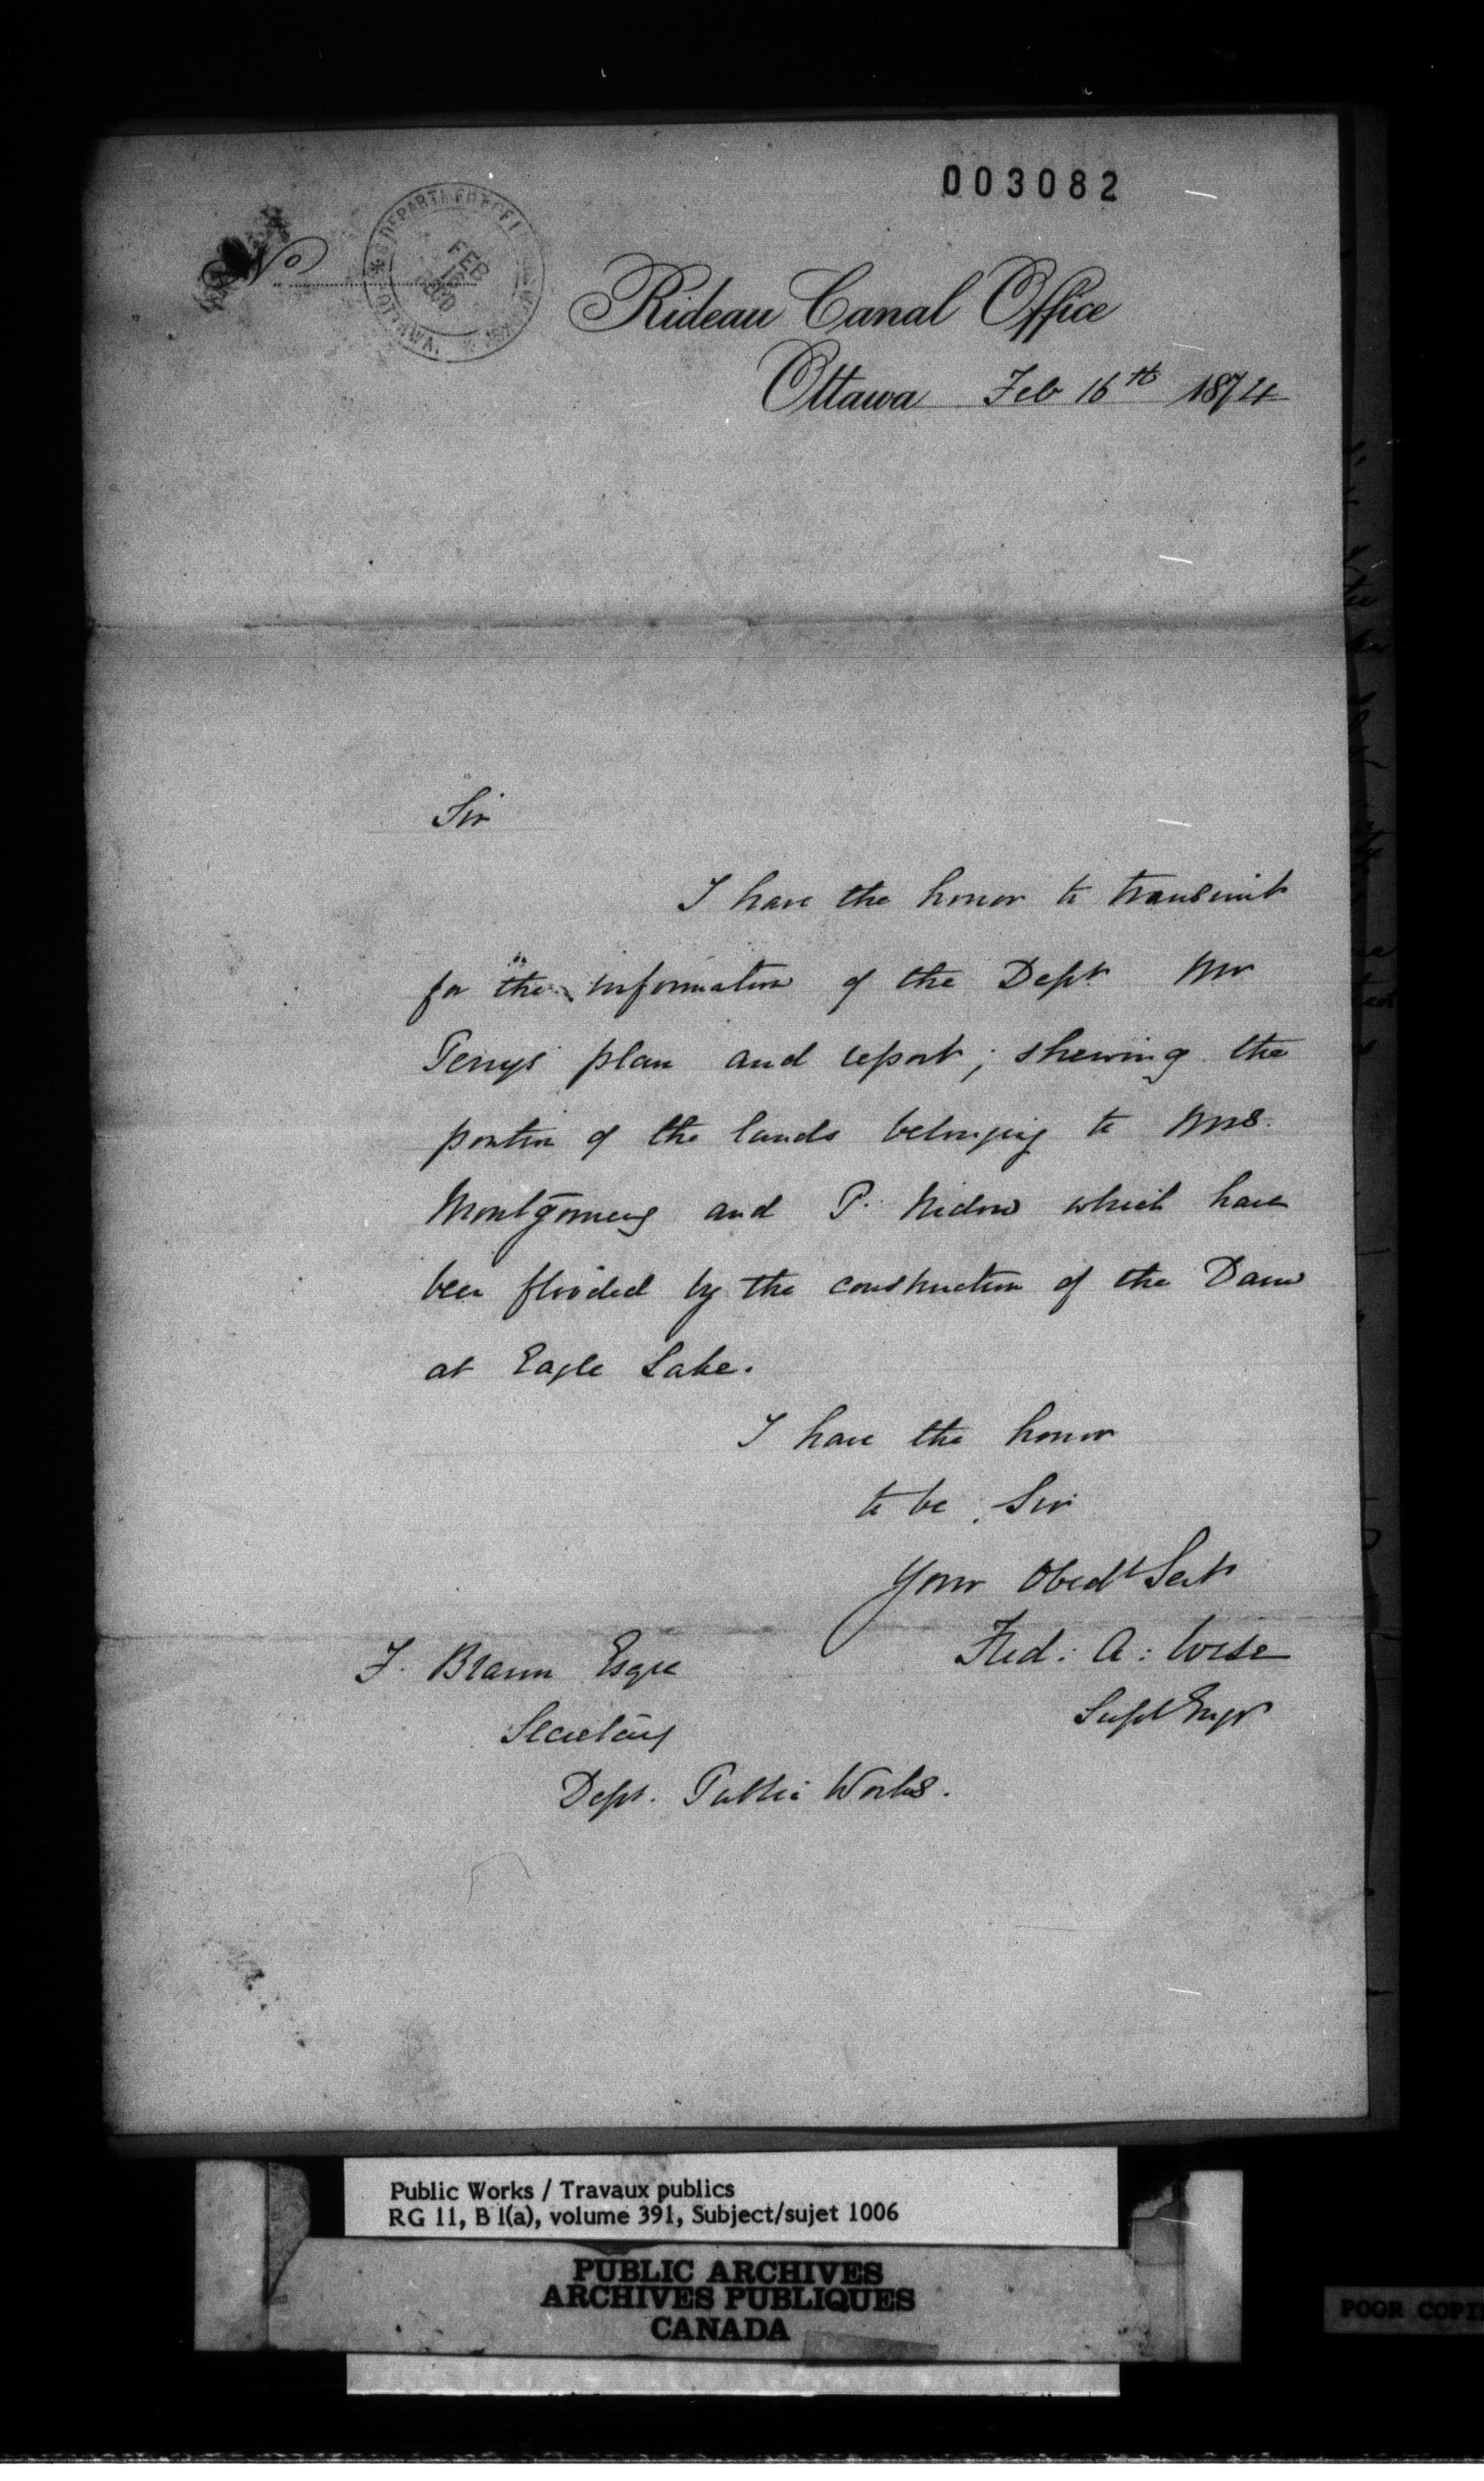 003082
No
FEB
16
Rideau Canal Office
Ottawa Feb 16th 1874
Sir
I have the honor to transmit
for the information of the Dept Mr
Perrys plan and report; shewing the
portion of the lands belonging to Mrs.
Montgomery and P. which have
been flooded by the construction of the Dam
at Eagle Lake.
I have the honor
to be, Sir
Your Obedt Sert
Fred: A: Wise
Supt Engr
F. Braun Esqre
Secretary
Dept. Public Works.
Public Works / Travaux publics
RG 11, B 1(a), volume 391, Subject/sujet 1006
PUBLIC ARCHIVES
ARCHIVES PUBLIQUES
CANADA
POOR COPI